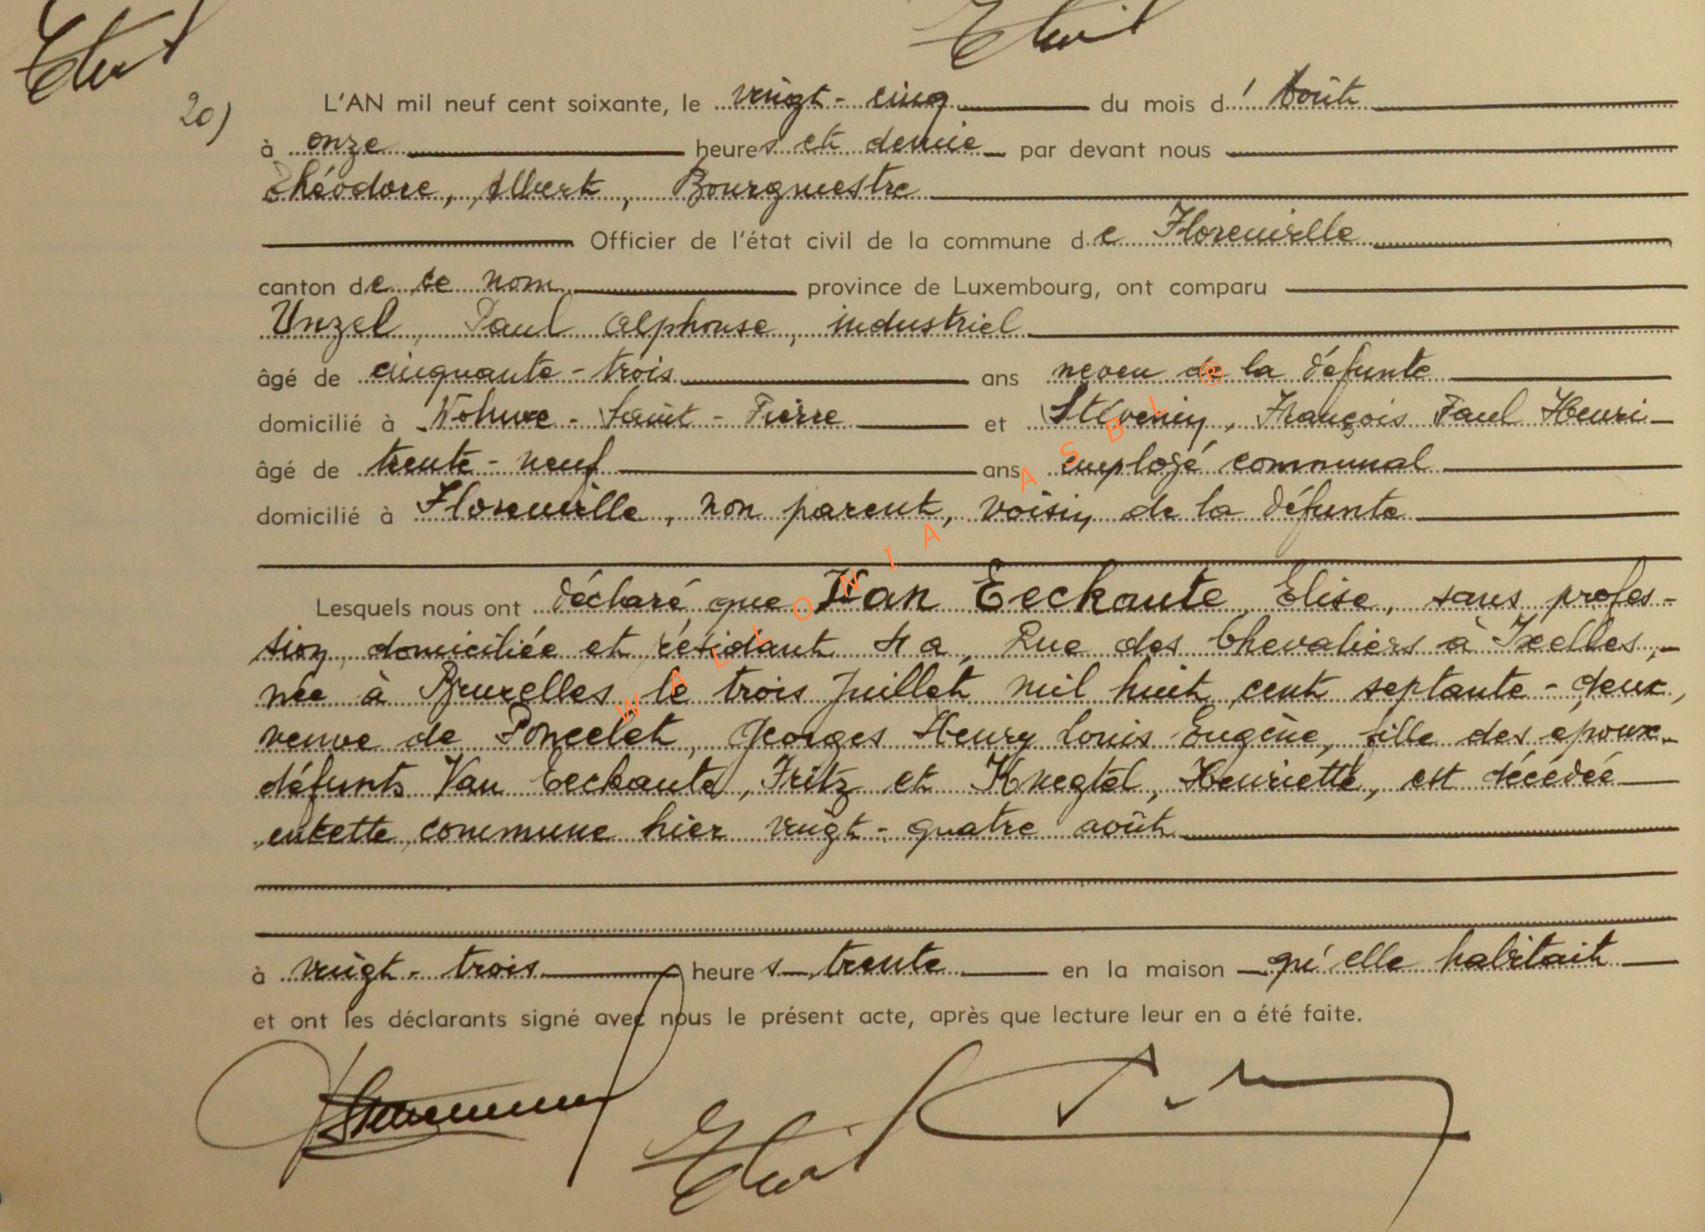 20)
L'AN mil neuf cent soixante, le vingt-cinq du mois d'Août
à onze heures et demie par devant nous
Théodore, Albert, Bourgmestre
Officier de l'état civil de la commune de Florenville
canton de ce nom province de Luxembourg, ont comparu
Unzel, Paul Alphonse, industriel
âgé de cinquante-trois ans neveu de la défunte
domicilié à Wohuwe-Saint-Pierre et Stévenin, François Paul Henri
âgé de trente-neuf ans employé communal
domicilié à Florenville, non parent, voisin de la défunte
Lesquels nous ont déclaré que Van Eeckaute, Elise, sans profes-
sion, domiciliée et résidant 4a, Rue des Chevaliers à Ixelles,
née à Bruxelles le trois juillet mil huit cent septante-deux,
veuve de Poncelet, Georges Henry Louis Eugène, fille des époux
défunts Van Eeckaute, Fritz et Knegtel, Henriette, est décédée
en cette commune hier vingt-quatre août
à vingt-trois heures trente en la maison qu'elle habitait
et ont les déclarants signé avec nous le présent acte, après que lecture leur en a été faite.
WALLONIA ASBL ®